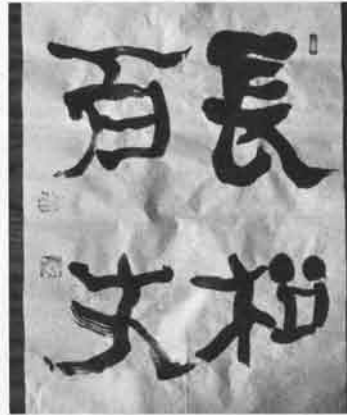 長松
百丈